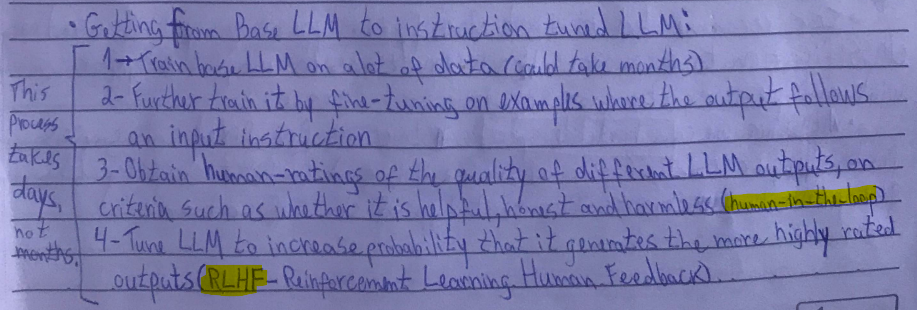 • Getting from Base LLM to instruction tuned LLM:
1→Train base LLM on a lot of data (could take months)
2- Further train it by fine-tuning on examples where the output follows
an input instruction
3- Obtain human-ratings of the quality of different LLM outputs, on
criteria such as whether it is helpful, honest and harmless (human-in-the-loop)
4- Tune LLM to increase probability that it generates the more highly rated
outputs (RLHF - Reinforcement Learning Human Feedback)
This
process
takes
days,
not
months.